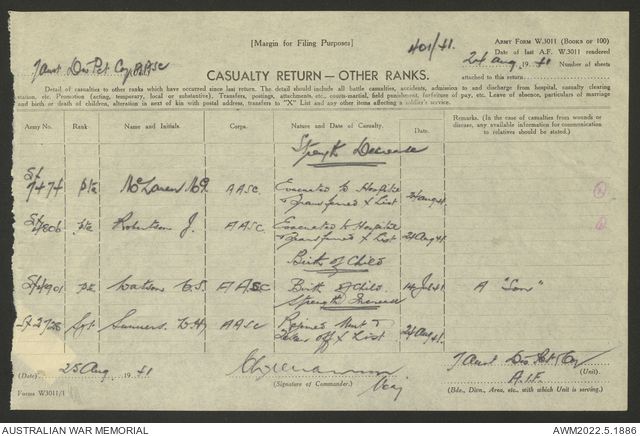 [Margin for Filing Purposes]
401/41.
ARMY FORM W.3011 (BOOKS OF 100)
Date of last A.F. W.3011 rendered
24 Aug. 1941 Number of sheets
attached to this return
7 Aust Div Pet Coy AASC
CASUALTY RETURN — OTHER RANKS.
Detail of casualties to other ranks which have occurred since last return. The detail should include all battle casualties, accidents, admission to and discharge from hospital, casualty clearing
station, etc. Promotion (acting, temporary, local or substantive). Transfers, postings, attachments, etc., courts-martial, field punishment, forfeiture of pay, etc. Leave of absence, particulars of marriage
and birth or death of children, alteration in next of kin with postal address, transfers to "X" List and any other items affecting a soldier's service.
Army No. Rank. Name and Initials. Corps. Nature and Date of Casualty. Date. Remarks. (In the case of casualties from wounds or
disease, any available information for communication
to relatives should be stated.)
Strength Decrease
7474 Pte McLaren AASC. Evacuated to Hospital
& Transferred X List
Pte Robertson J. AASC. Evacuated to Hospital
& Transferred X List 24 Aug 41
Birth of Child
Watson AASC Birth of Child 14 Jul 41 A "Son"
Strength Increase
Sgt AASC Rejoined Unit &
Taken off X List 24 Aug 41
(Date) 25 Aug. 1941
(Signature of Commander.)
7 Aust Div Pet Coy
(Unit).
A.I.F.
(Bde., Divn., Area, etc., with which Unit is serving.)
Forms W3011/1
AUSTRALIAN WAR MEMORIAL
AWM2022.5.1886